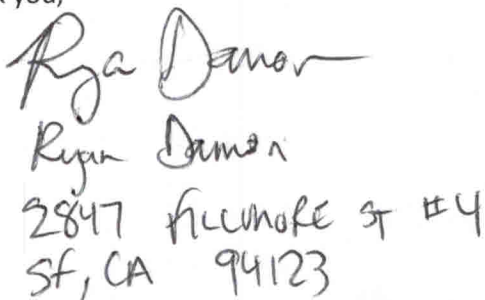 you,
Ryan Damon
Ryan Damon
2847 FILLMORE ST #4
SF, CA 94123